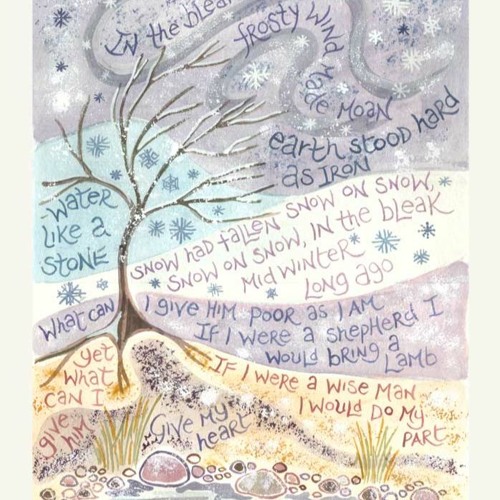 IN the bleak
frosty wind
made moan
earth stood hard
as IRON
WATER
like a
STONE
SNOW had fallen SNOW ON SNOW,
SNOW ON SNOW, IN the bleak
Mid winter
LONG ago
What can
I give HIM POOR as I AM
IF I were a shepherd I
would bring a
LAMB
IF I were a wise man
I would do my
PART
yet
what
can I
give
HIM
Give my
heart